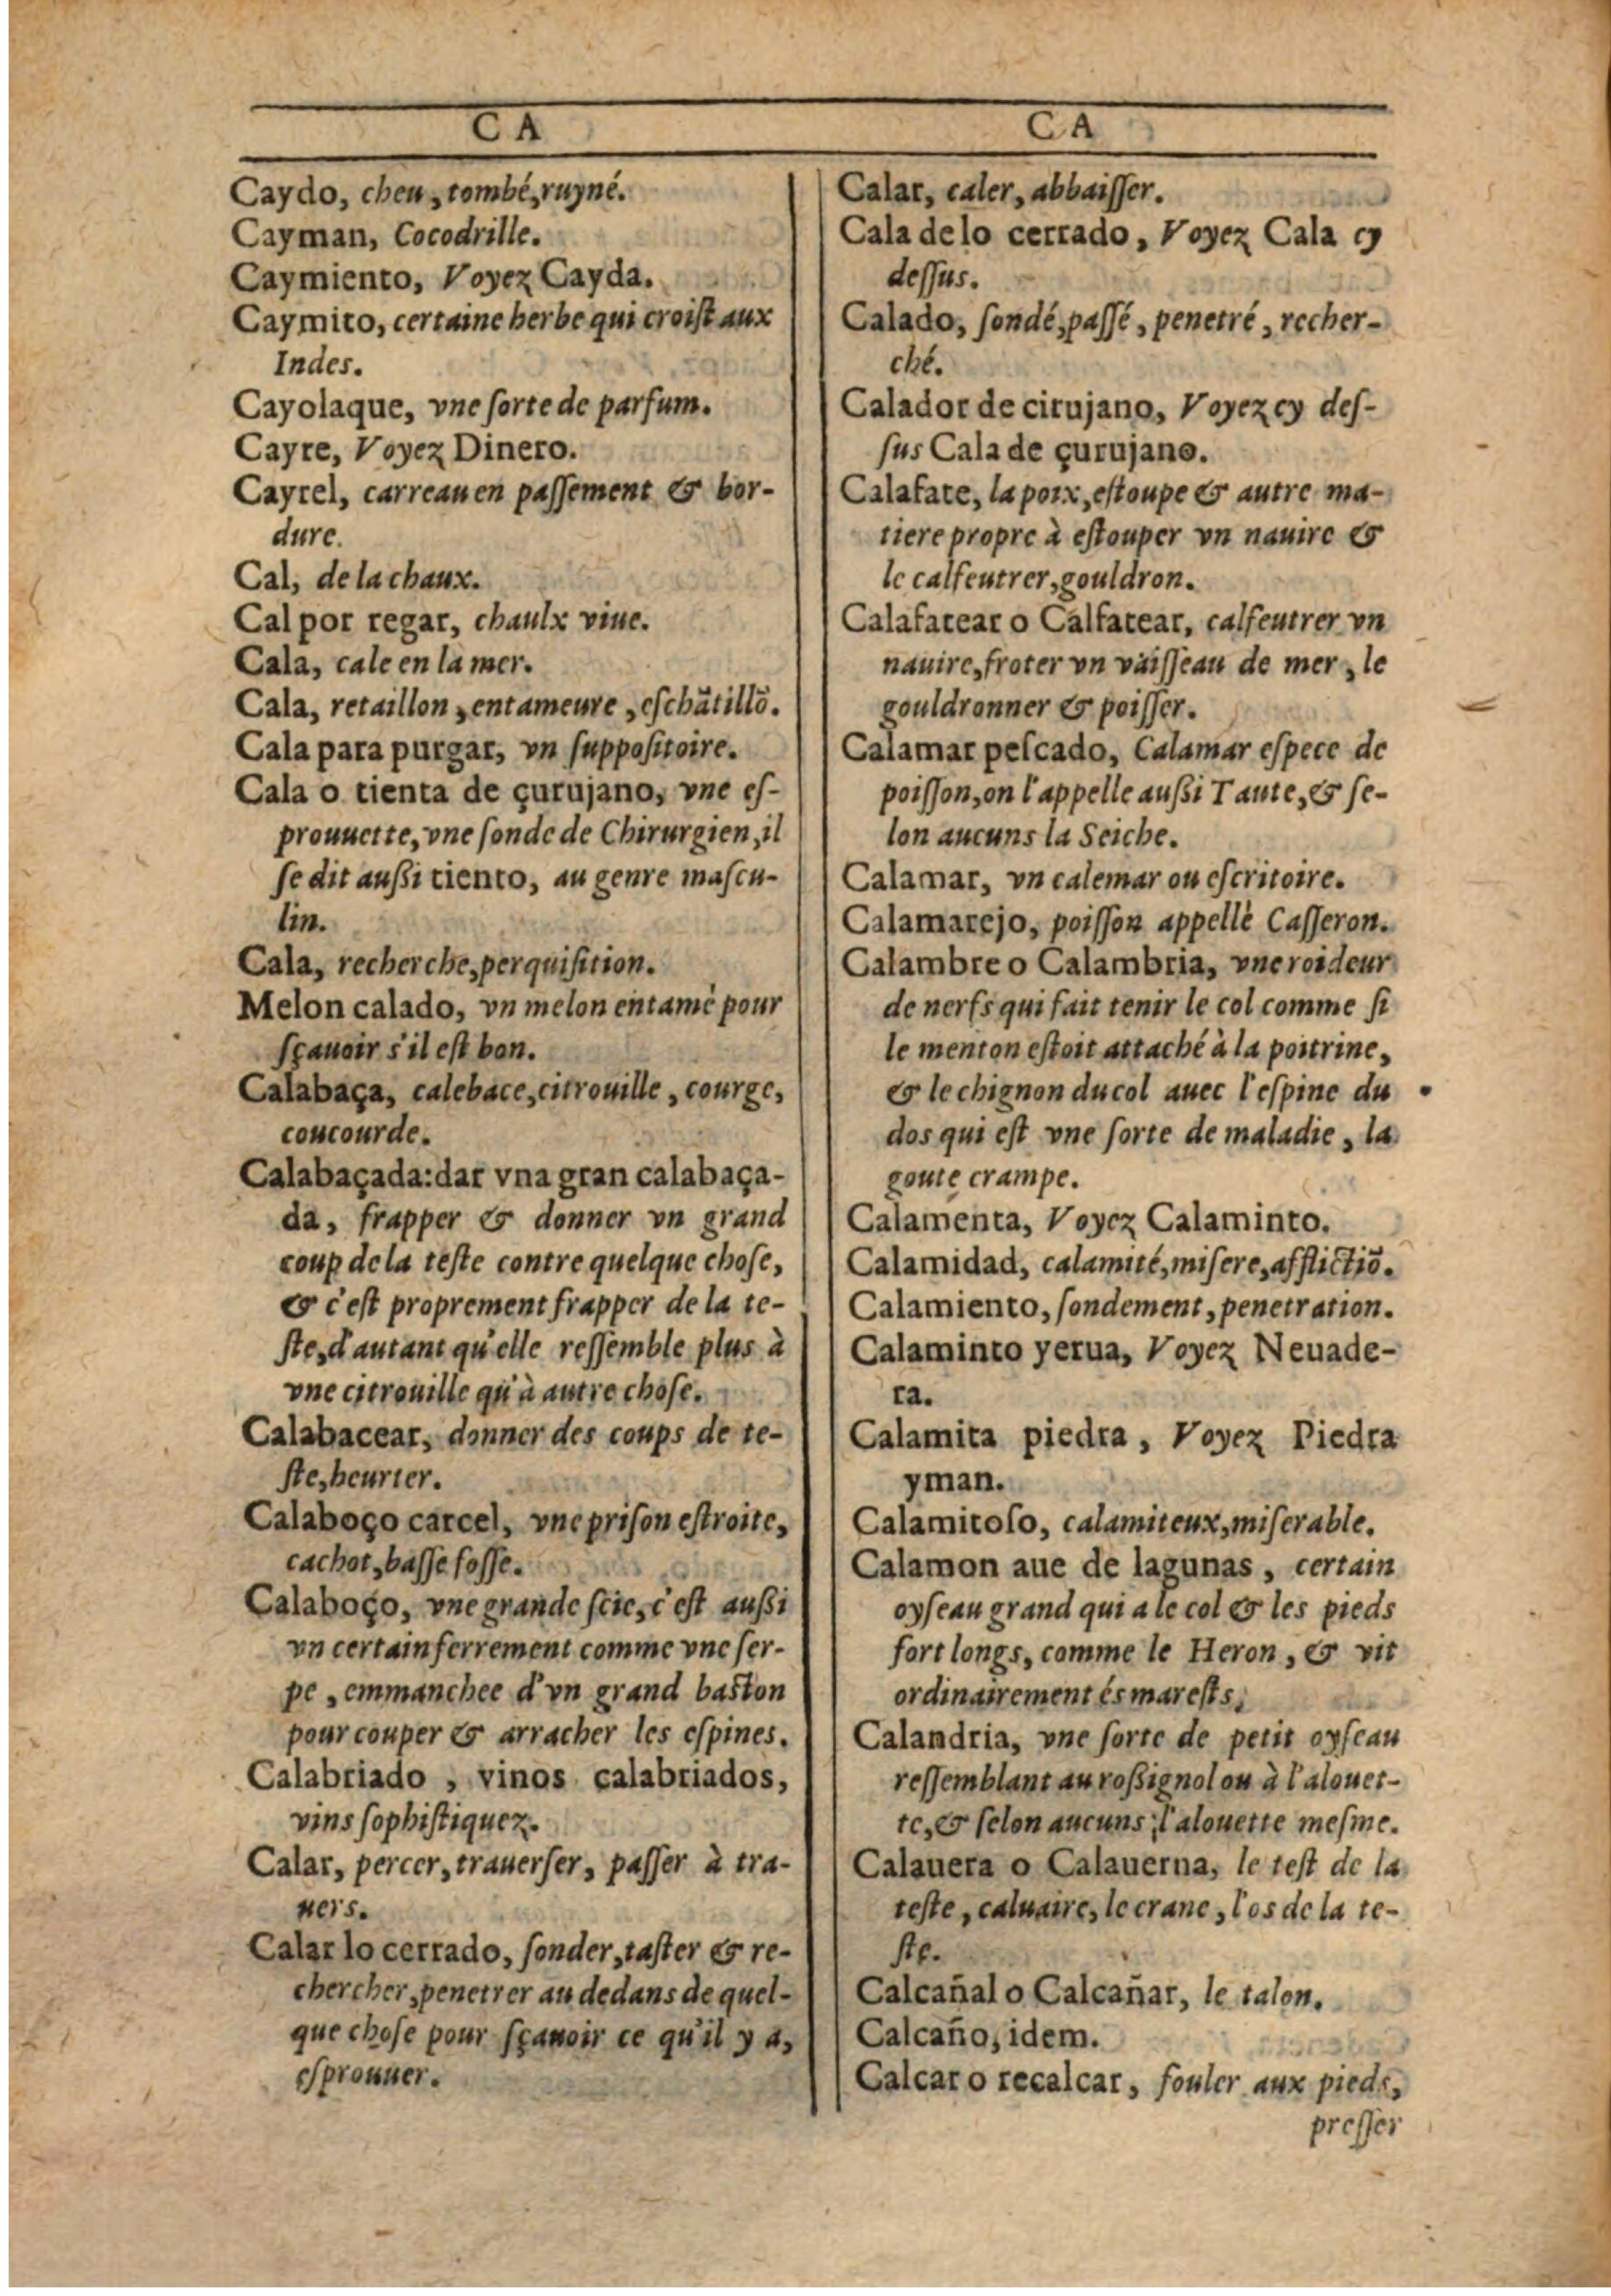 CA
Caydo, cheu, tombé, ruyné.
Cayman, Cocodrille.
Caymiento, Voyez Cayda.
Caymito, certaine herbe qui croiſt aux
Indes.
Cayolaque, vne ſorte de parfum.
Cayre, Voyez Dinero.
Cayrel, carreau en paſſement & bor-
dure.
Cal, de la chaux.
Cal por regar, chaulx viue.
Cala, cale en la mer.
Cala, retaillon, entameure, eſchãtillõ.
Cala para purgar, vn ſuppoſitoire.
Cala o tienta de çurujano, vne eſ-
prouuette, vne ſonde de Chirurgien, il
ſe dit auſſi tiento, au genre maſcu-
lin.
Cala, recherche, perquiſition.
Melon calado, vn melon entamé pour
ſçauoir s'il eſt bon.
Calabaça, calebace, citrouille, courge,
coucourde.
Calabaçada: dar vna gran calabaça-
da, frapper & donner vn grand
coup de la teſte contre quelque choſe,
& c'eſt proprement frapper de la te-
ſte, d'autant qu'elle reſſemble plus à
vne citrouille qu'à autre choſe.
Calabacear, donner des coups de te-
ſte, heurter.
Calaboço carcel, vne priſon eſtroite,
cachot, baſſe foſſe.
Calaboço, vne grande ſcie, c'eſt auſſi
vn certain ferrement comme vne ſer-
pe, emmanchee d'vn grand baſton
pour couper & arracher les eſpines.
Calabriado, vinos calabriados,
vins ſophiſtiquez.
Calar, percer, trauerſer, paſſer à tra-
uers.
Calar lo cerrado, ſonder, taſter & re-
chercher, penetrer au dedans de quel-
que choſe pour ſçauoir ce qu'il y a,
eſprouuer.
CA
Calar, caler, abbaiſſer.
Cala de lo cerrado, Voyez Cala cy
deſſus.
Calado, ſondé, paſſé, penetré, recher-
ché.
Calador de cirujano, Voyez cy deſ-
ſus Cala de çurujano.
Calafate, la poix, eſtoupe & autre ma-
tiere propre à eſtouper vn nauire &
le calfeutrer, gouldron.
Calafatear o Calfatear, calfeutrer vn
nauire, froter vn vaiſſeau de mer, le
gouldronner & poiſſer.
Calamar peſcado, Calamar eſpece de
poiſſon, on l'appelle auſſi Taute, & ſe-
lon aucuns la Seiche.
Calamar, vn calemar ou eſcritoire.
Calamarejo, poiſſon appellé Caſſeron.
Calambre o Calambria, vne roideur
de nerfs qui fait tenir le col comme ſi
le menton eſtoit attaché à la poitrine,
& le chignon du col auec l'eſpine du
dos qui eſt vne ſorte de maladie, la
goute crampe.
Calamenta, Voyez Calaminto.
Calamidad, calamité, miſere, afflictiõ.
Calamiento, ſondement, penetration.
Calaminto yerua, Voyez Neuade-
ra.
Calamita piedra, Voyez Piedra
yman.
Calamitoſo, calamiteux, miſerable.
Calamon aue de lagunas, certain
oyſeau grand qui a le col & les pieds
fort longs, comme le Heron, & vit
ordinairement és mareſts.
Calandria, vne ſorte de petit oyſeau
reſſemblant au roſſignol ou à l'alouet-
te, & ſelon aucuns, l'alouette meſme.
Calauera o Calauerna, le teſt de la
teſte, caluaire, le crane, l'os de la te-
ſte.
Calcañal o Calcañar, le talon.
Calcaño, idem.
Calcar o recalcar, fouler aux pieds,
preſſer